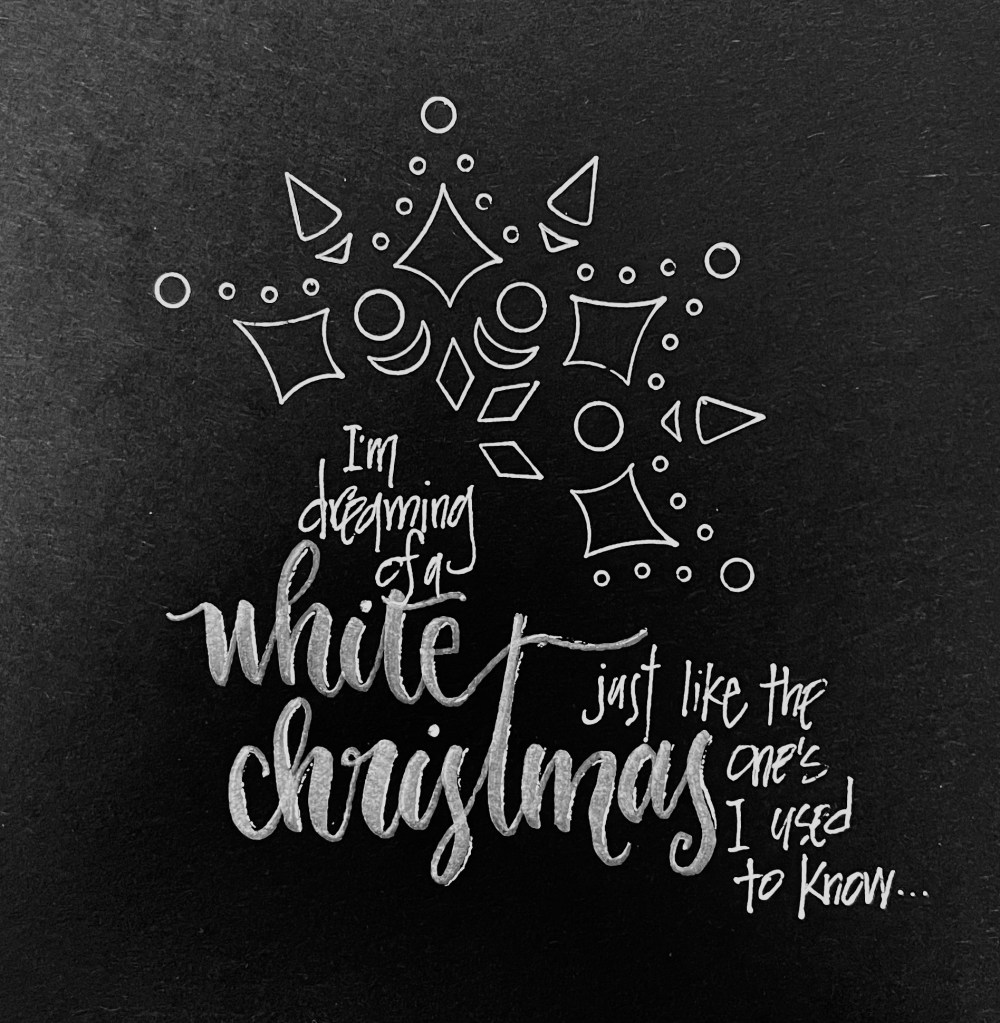 I'm
dreaming
of a
white
christmas
just like the
one's
I used
to know...